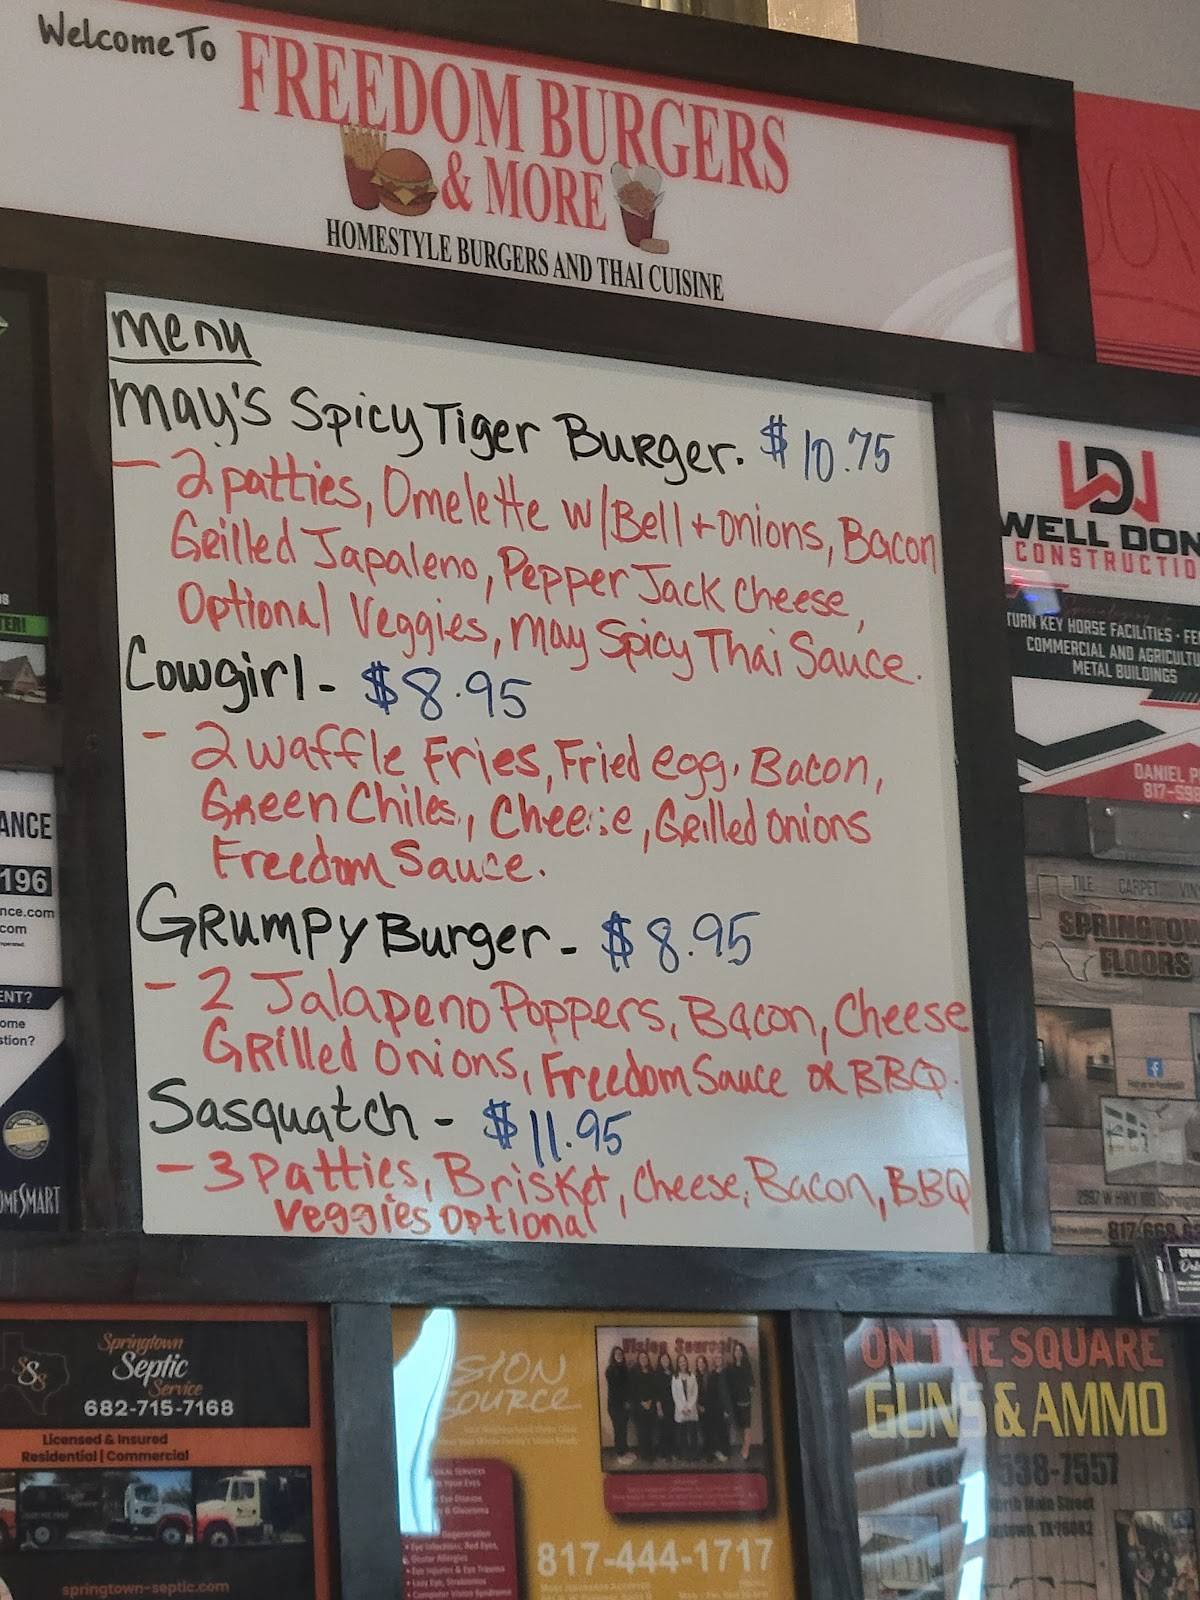 Welcome To FREEDOM BURGERS
& MORE
HOMESTYLE BURGERS AND THAI CUISINE
Menu
May's Spicy Tiger Burger. $10.75
- 2 patties, Omelette w/Bell + onions, Bacon
Grilled Japaleno, Pepper Jack cheese,
Optional Veggies, May Spicy Thai Sauce.
Cowgirl - $8.95
- 2 waffle Fries, Fried egg, Bacon,
Green Chiles, Cheese, Grilled onions
Freedom Sauce.
Grumpy Burger - $8.95
- 2 Jalapeno Poppers, Bacon, Cheese
Grilled Onions, Freedom Sauce or BBQ.
Sasquatch - $11.95
- 3 Patties, Brisket, Cheese, Bacon, BBQ
Veggies Optional
WELL DON
CONSTRUCTIO
TURN KEY HORSE FACILITIES • FE
COMMERCIAL AND AGRICULTU
METAL BUILDINGS
DANIEL P
817-598
TILE CARPET VIN
SPRINGTOW
FLOORS
817-668-6
ANCE
196
nce.com
com
ENT?
ome
stion?
OMESMART
Springtown
Septic
Service
682-715-7168
Licensed & Insured
Residential | Commercial
springtown-septic.com
SION
OURCE
Vision Source
817-444-1717
ON THE SQUARE
GUNS & AMMO
538-7557
North Main Street
TX 76082